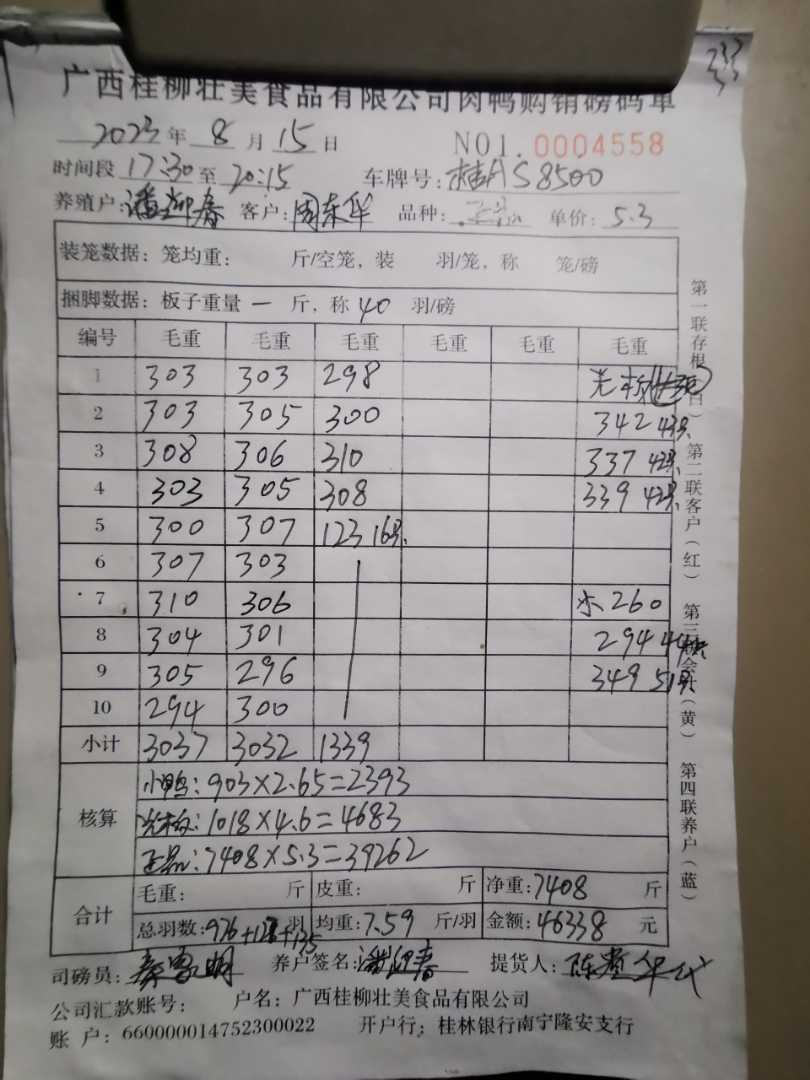 广西桂柳壮美食品有限公司肉鸭购销磅码单
2023年 8月15日 NO1.0004558
时间段 17:30 至 20:15 车牌号:桂AS8500
养殖户:潘迎春 客户:周东华 品种: 单价:5.3
装笼数据: 笼均重: 斤/空笼, 装 羽/笼, 称 笼/磅
捆脚数据: 板子重量 一 斤, 称 40 羽/磅
编号 毛重 毛重 毛重 毛重 毛重 毛重
1 303 303 298
2 303 305 300 342 43只
3 308 306 310 337 42只
4 303 305 308 339 42只
5 300 307 123 16只
6 307 303
7 310 306 小 260
8 304 301 294
9 305 296 349 51只
10 294 300
小计 3037 3032 1339
核算
小鸭:903×2.65=2393
1018×4.6=4683
正品:7408×5.3=39262
合计
毛重: 斤 皮重: 斤 净重:7408 斤
总羽数:976 羽 均重:7.59 斤/羽 金额:46338 元
司磅员: 养户签名:潘迎春 提货人:
公司汇款账号: 户名:广西桂柳壮美食品有限公司
账 户: 660000014752300022 开户行: 桂林银行南宁隆安支行
第一联存根(白) 第二联客户(红) 第三联会计(黄) 第四联养户(蓝)